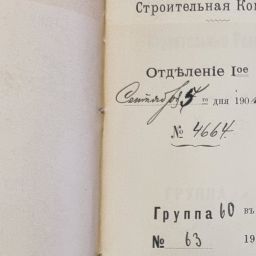 Строительная Ком
Отдѣленіе Iое
Сентября 5го дня 190
№ 4664.
Группа 60 въ
№ 63 19